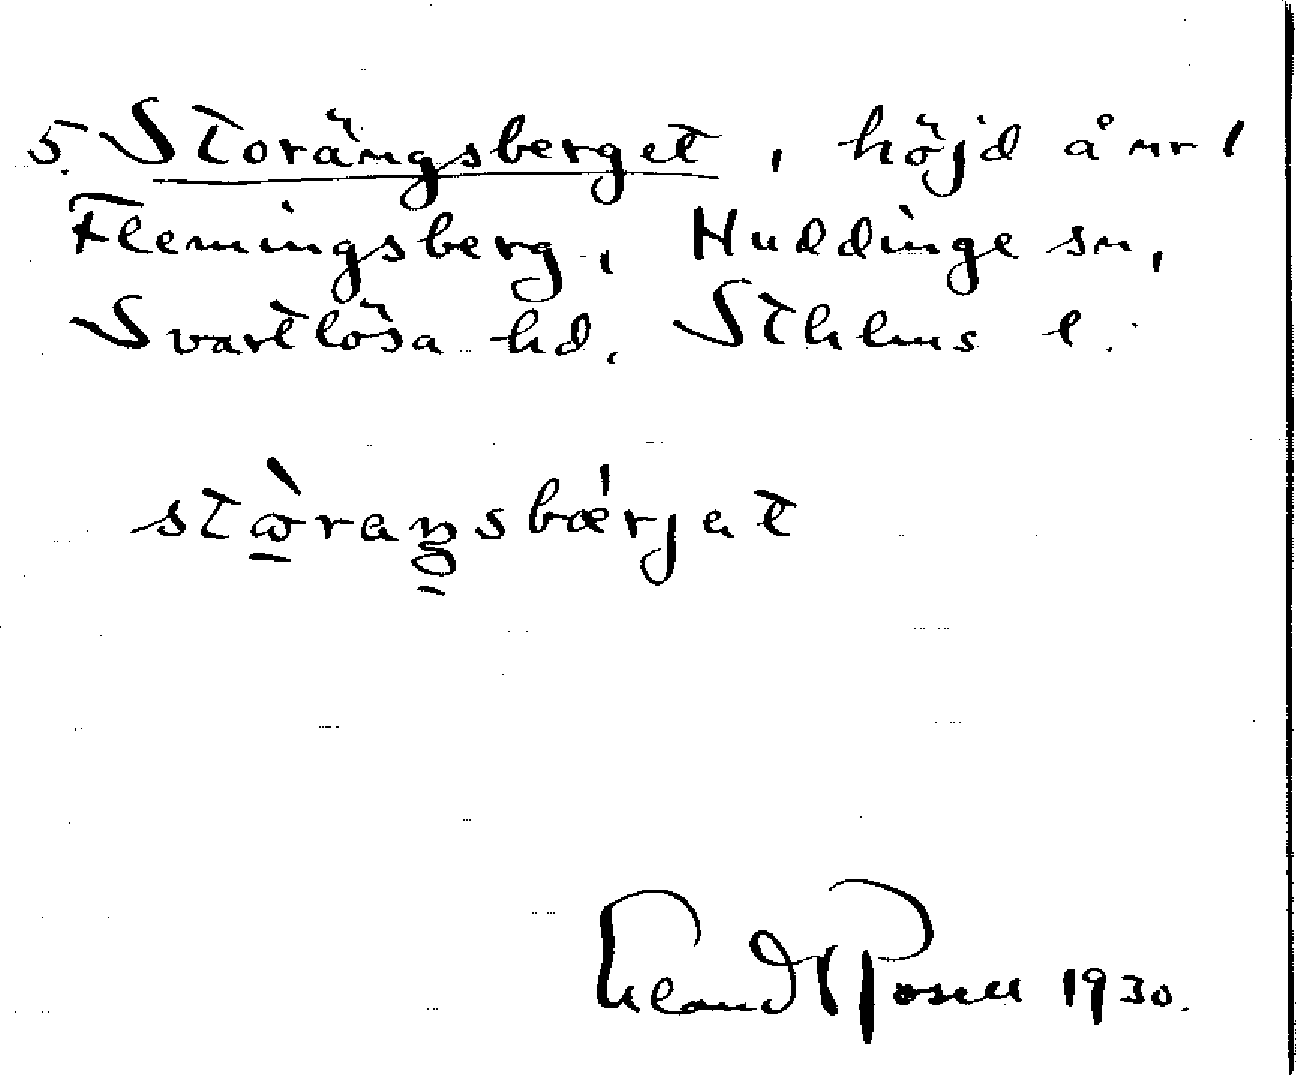 5. Storängsberget, höjd å nr 1
Flemingsberg, Huddinge sn,
Svartlösa hd. Sthlms l.
stɷ̀raŋsbǽrjet
1930.